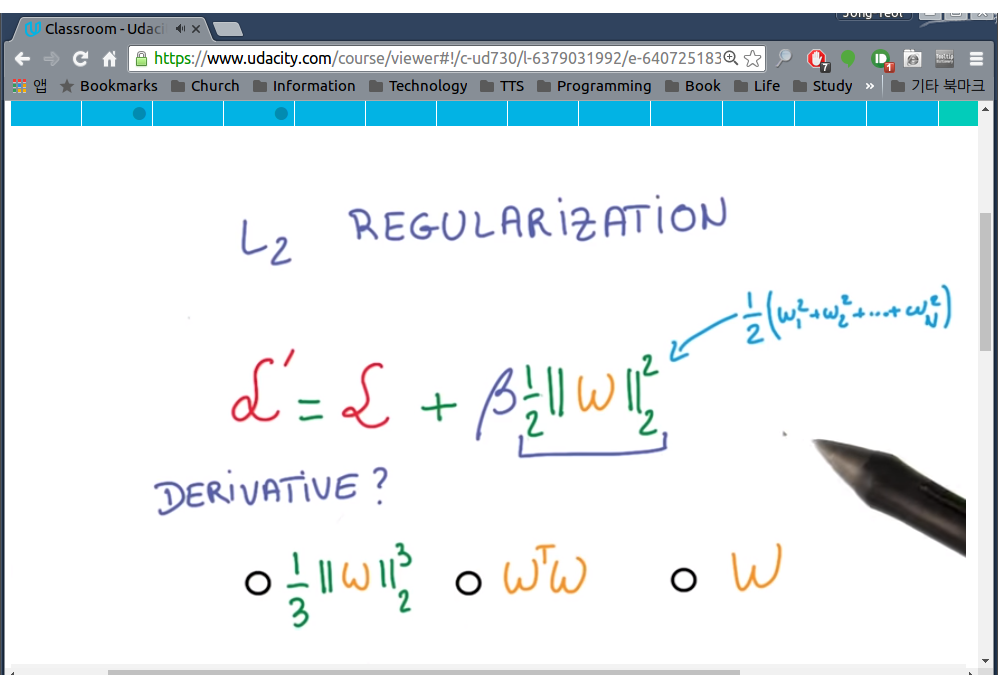 Jong Yeol
Classroom - Udaci
https://www.udacity.com/course/viewer#!/c-ud730/l-6379031992/e-640725183
7
1
앱 Bookmarks Church Information Technology TTS Programming Book Life Study » 기타 북마크
L₂ REGULARIZATION
½(ω₁²+ω₂²+...+ω_N²)
ℒ' = ℒ + β ½‖ω‖₂²
DERIVATIVE?
⅓‖ω‖₂³ ωᵀω ω